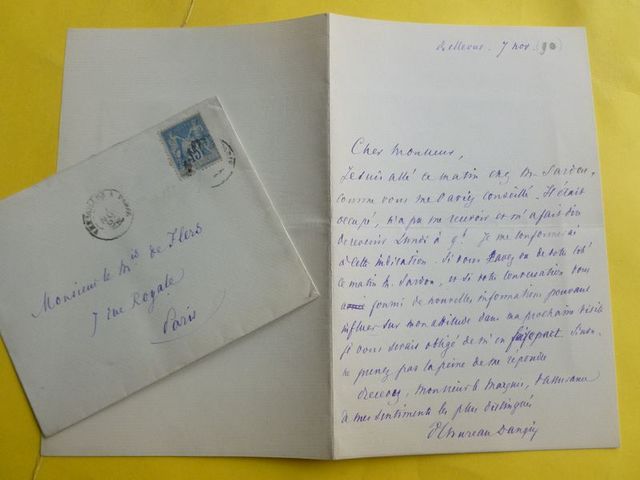 Bellevue. 7 nov (90)
Cher Monsieur,
Je suis allé ce matin chez Mr Sardou,
comme vous me l'aviez conseillé. Il était
occupé, n'a pu me recevoir et m'a fait dire
de revenir Lundi à 9h. Je me conformerai
à cette indication. Si vous avez vu de votre côté
ce matin Mr Sardou, et si votre conversation vous
a fourni de nouvelles informations pouvant
influer sur mon attitude dans ma prochaine visite
je vous serais obligé de m'en faire part. Sinon,
ne prenez pas la peine de me répondre
Recevez, Monsieur le Marquis, l'assurance
de mes sentiments les plus distingués
Thureau Dangin
Monsieur le Mis de Flers
7 rue Royale
Paris
15